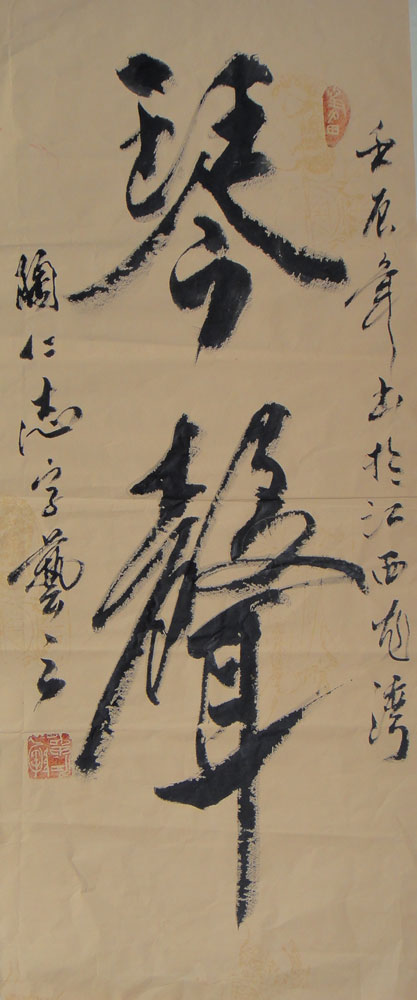 壬辰年書於江西龙湾
琴聲
陶仁志字藝之